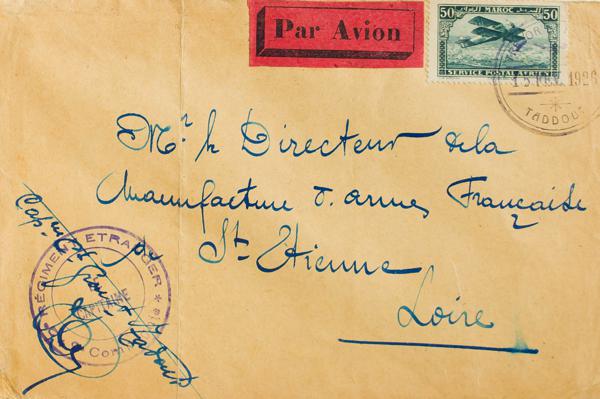 Par Avion
50 MAROC 50
SERVICE POSTAL AÉRIEN
1926
TADDOUT
Mr le Directeur de la
Manufacture d'armes Française
St Etienne
Loire
RÉGIMENT ETRANGER
CAPITAINE
Com
Cap.